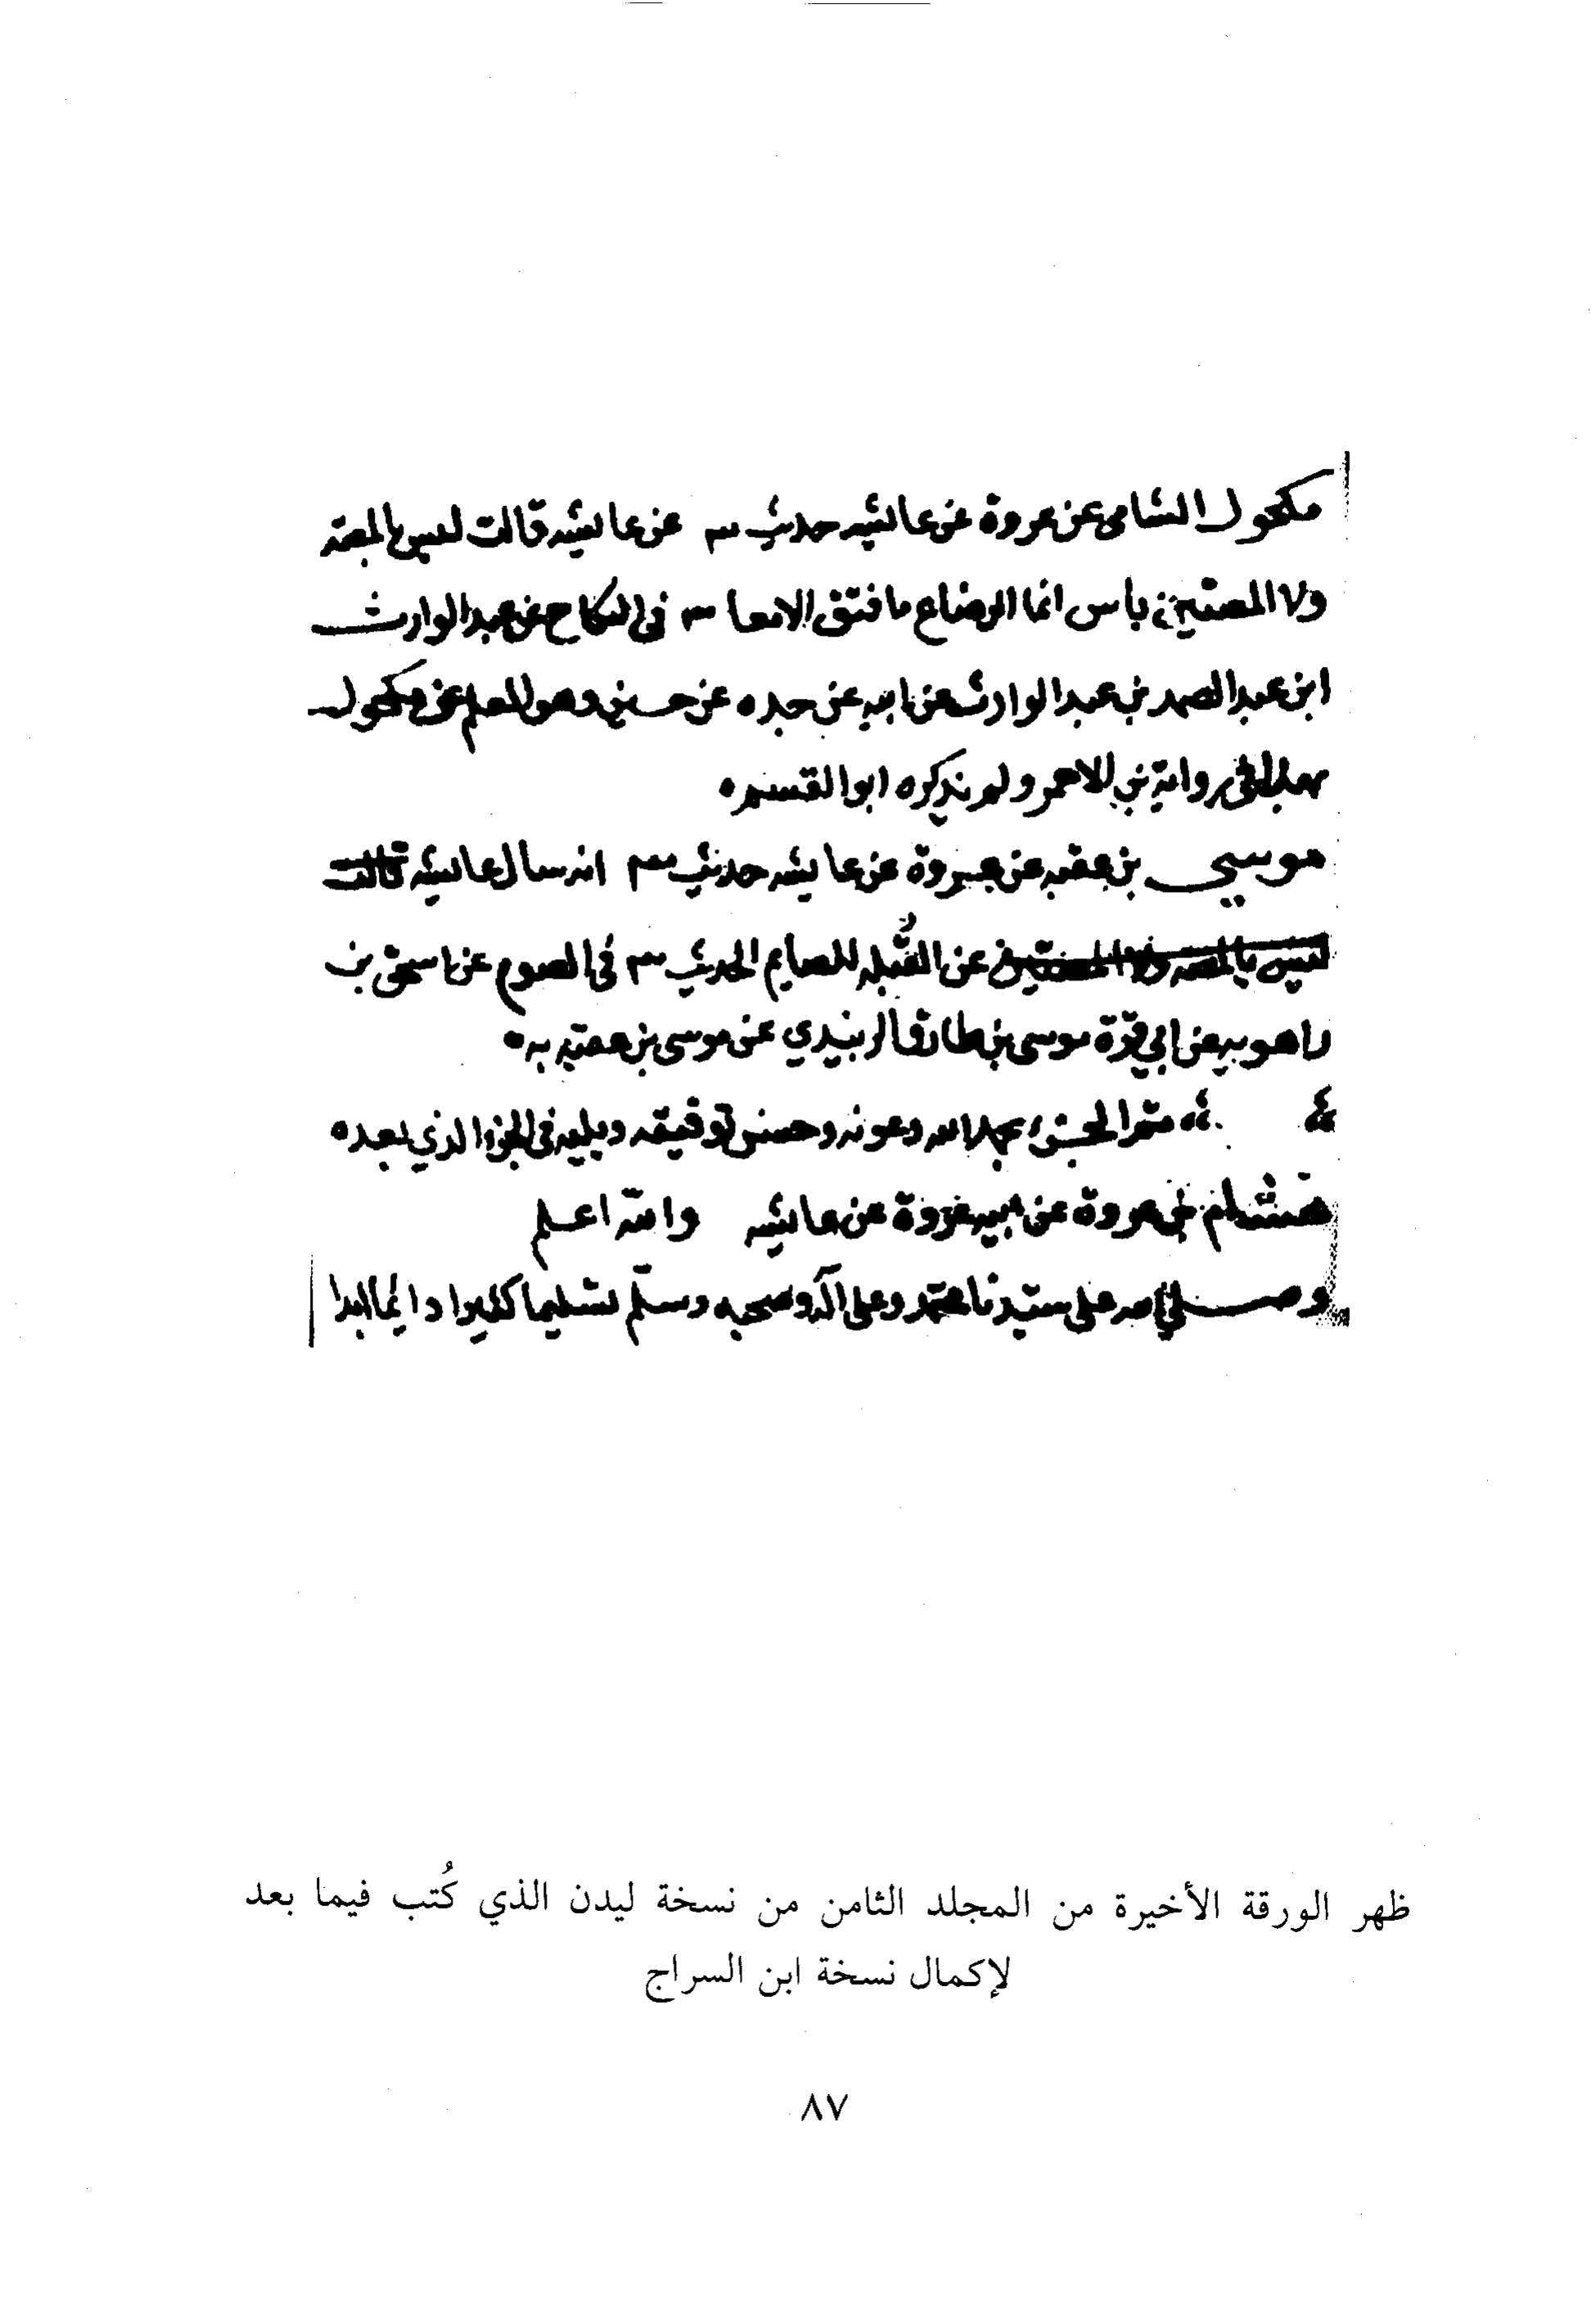 مكحول الشامي عن عروة عن عايشه حديث س عن عايشه قالت ليس بالمصة
ولا المصتين باس انما الرضاع ما فتق الامعا س في النكاح عن عبد الوارث
ابن عبد الصمد بن عبد الوارث عن ابيه عن جده عن حسين وهو المعلم عن مكحول
في رواية بن الاحمر ولم يذكره ابو القسم ه
موسى بن عقبه عن عروة عن عايشه حديث س انه سال عايشه قالت
ليس بالمصه ولا المصتين عن القُبله للصايم الحديث س في الصوم عن اسحق بن
راهويه عن ابي قرة موسى بن طارق الزبيدي عن موسى بن عقبه به ه
تم الجزء بحمد الله وعونه وحسن توفيقه ويليه في الجزء الذي بعده
هشام بن عروة عن ابيه عروة عن عايشه والله اعلم
وصلى الله على سيدنا محمد وعلى آله وصحبه وسلم تسليما كثيرا دايما ابدا
ظهر الورقة الأخيرة من المجلد الثامن من نسخة ليدن الذي كُتب فيما بعد
لإكمال نسخة ابن السراج
٨٧